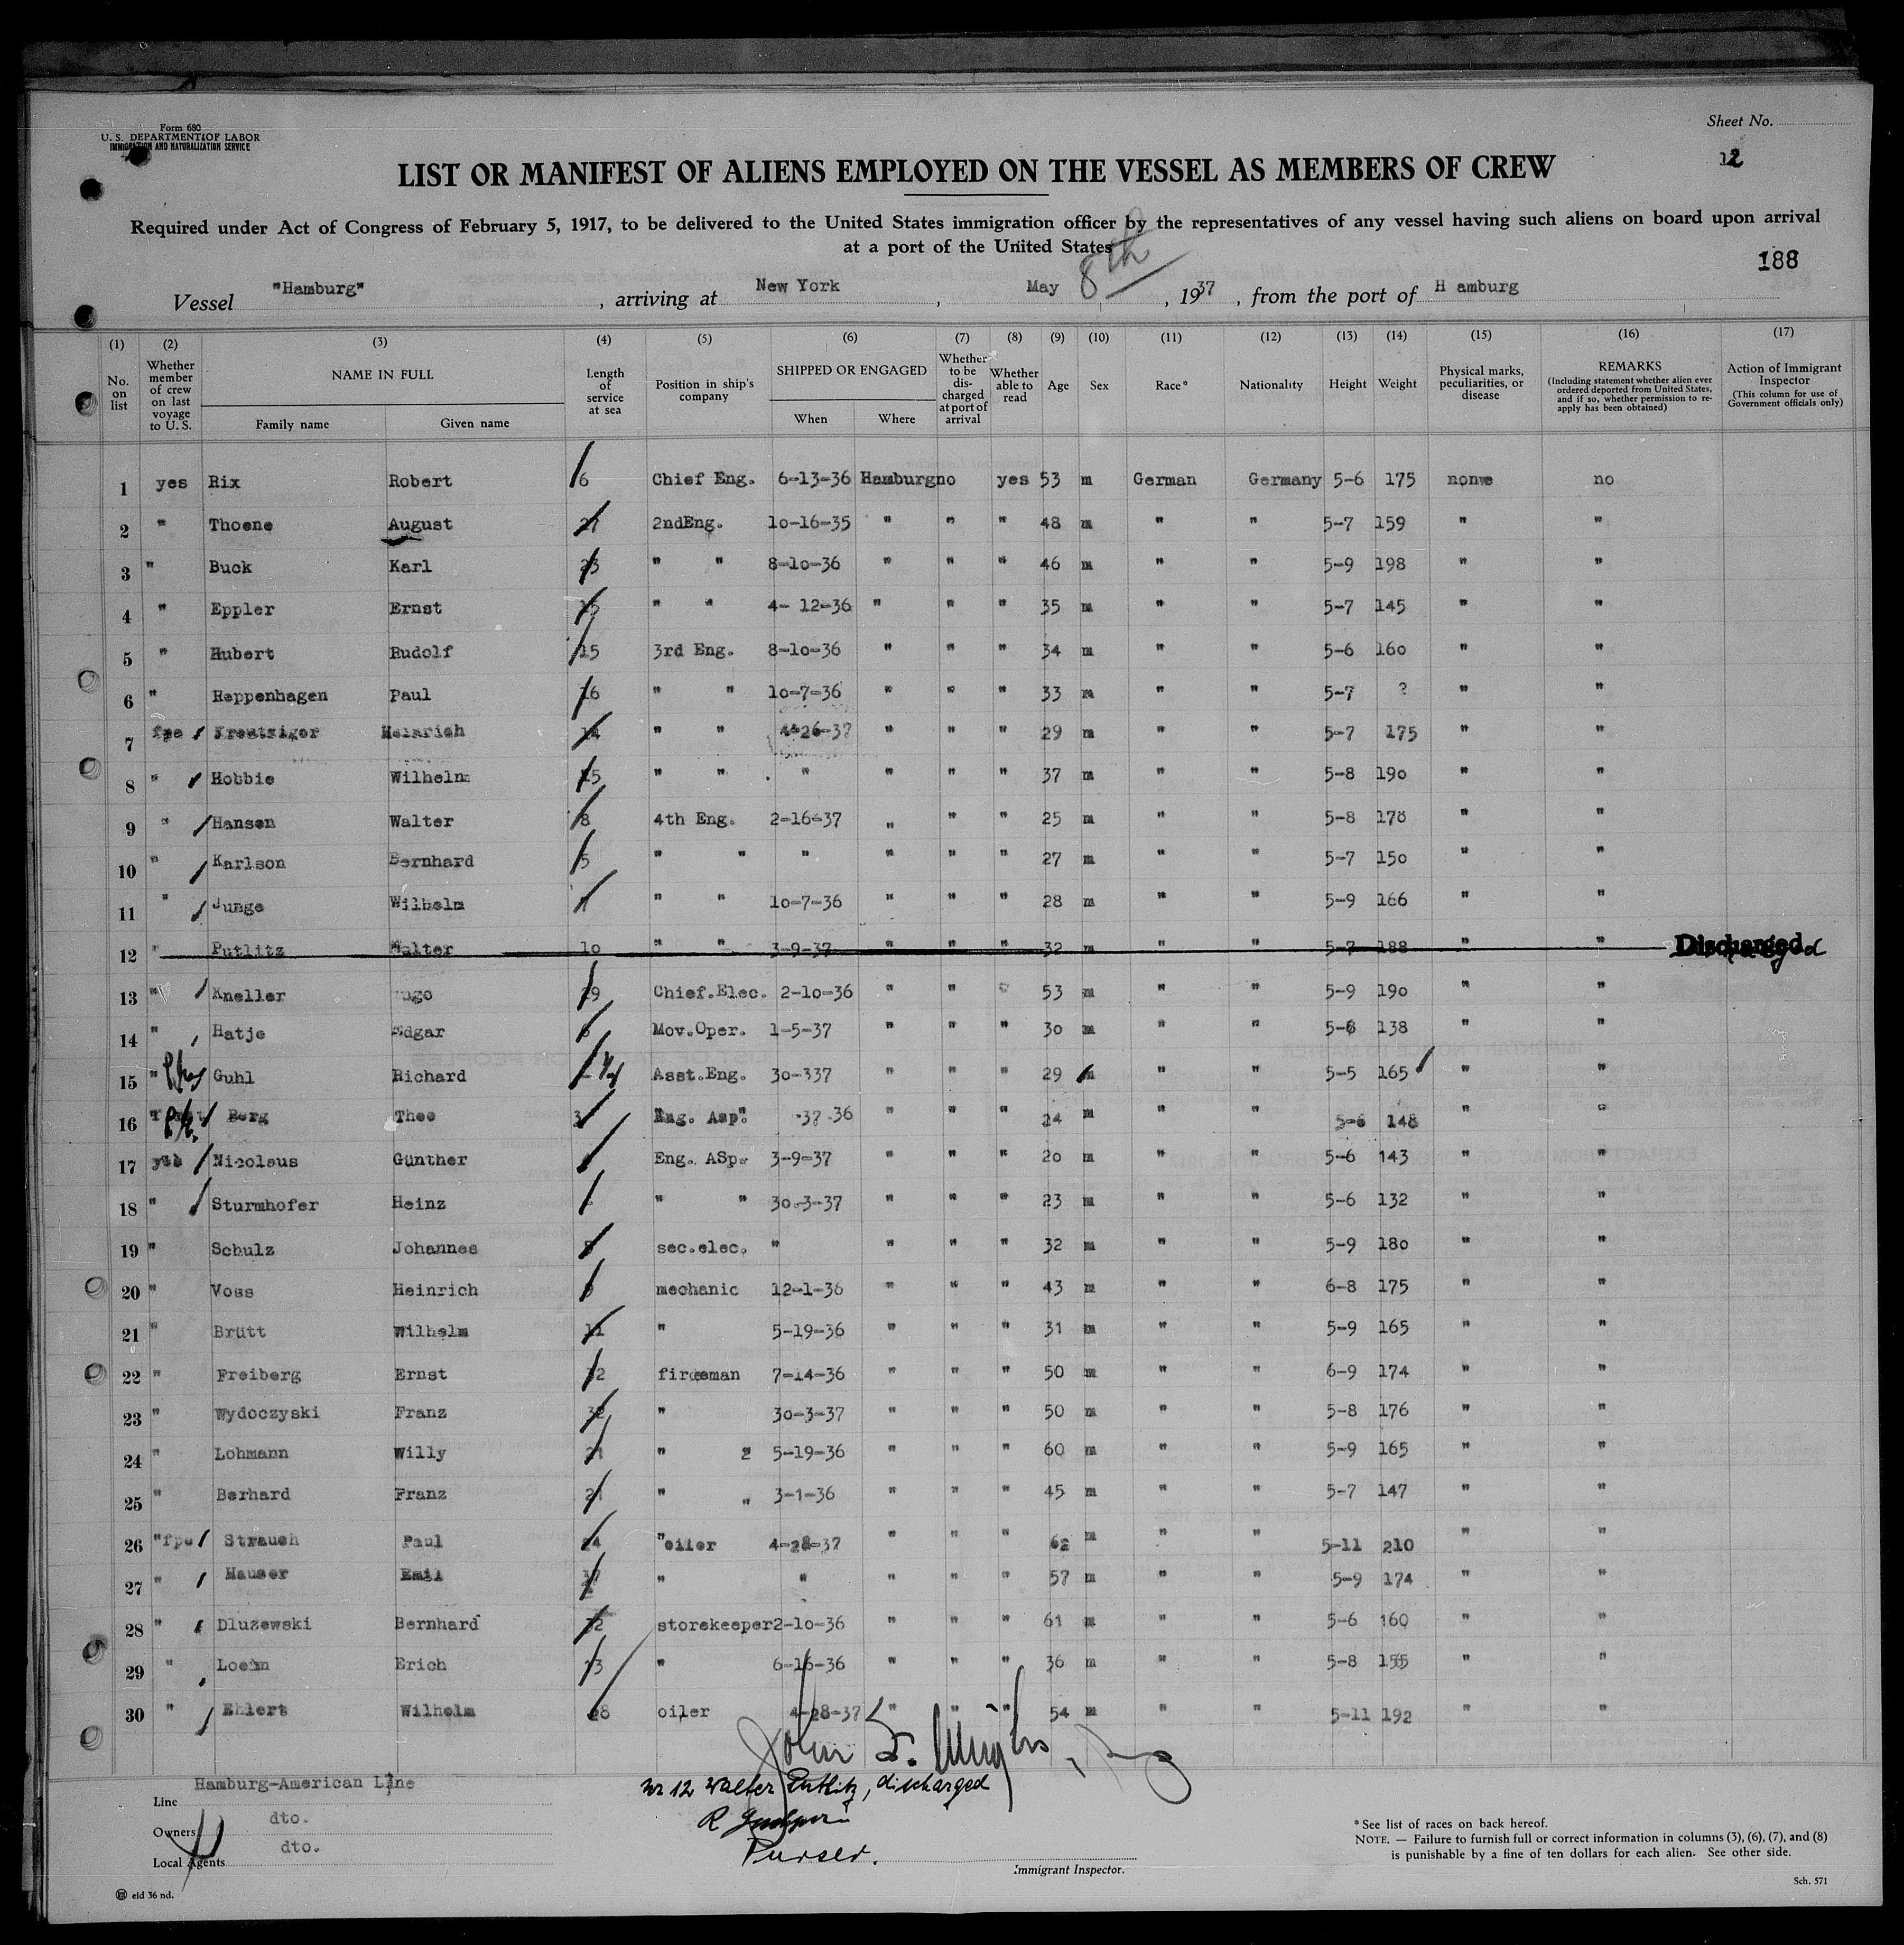 Form 680
U. S. DEPARTMENT OF LABOR
IMMIGRATION AND NATURALIZATION SERVICE
Sheet No.
12
LIST OR MANIFEST OF ALIENS EMPLOYED ON THE VESSEL AS MEMBERS OF CREW
Required under Act of Congress of February 5, 1917, to be delivered to the United States immigration officer by the representatives of any vessel having such aliens on board upon arrival
at a port of the United States
188
Vessel "Hamburg", arriving at New York, May 8th, 1937, from the port of H amburg
(1) (2) (3) (4) (5) (6) (7) (8) (9) (10) (11) (12) (13) (14) (15) (16) (17)
No. on list
Whether member of crew on last voyage to U. S.
NAME IN FULL
Family name
Given name
Length of service at sea
Position in ship's company
SHIPPED OR ENGAGED
When
Where
Whether to be discharged at port of arrival
Whether able to read
Age
Sex
Race*
Nationality
Height
Weight
Physical marks, peculiarities, or disease
REMARKS
(Including statement whether alien ever ordered deported from United States, and if so, whether permission to reapply has been obtained)
Action of Immigrant Inspector
(This column for use of Government officials only)
1 yes Rix Robert 6 Chief Eng. 6-13-36 Hamburg no yes 53 m German Germany 5-6 175 none no
2 " Thoene August 27 2ndEng. 10-16-35 " " " 48 m " " 5-7 159 " "
3 " Buck Karl 23 " " 8-10-36 " " " 46 m " " 5-9 198 " "
4 " Eppler Ernst 15 " " 4- 12-36 " " " 35 m " " 5-7 145 " "
5 " Hubert Rudolf 15 3rd Eng. 8-10-36 " " " 34 m " " 5-6 160 " "
6 " Reppenhagen Paul 16 " " 10-7-36 " " " 33 m " " 5-7 ? " "
7 fpe Kreutziger Heinrich 14 " " 4-26-37 " " " 29 m " " 5-7 175 " "
8 " Hobbie Wilhelm 15 " " " " " " 37 m " " 5-8 190 " "
9 " Hansen Walter 8 4th Eng. 2-16-37 " " " 25 m " " 5-8 178 " "
10 " Karlson Bernhard 5 " " " " " " 27 m " " 5-7 150 " "
11 " Junge Wilhelm " " 10-7-36 " " " 28 m " " 5-9 166 " "
12 " Putlitz Walter 10 " " 3-9-37 " " " 32 m " " 5-7 188 " " Discharged
13 " Kneller Hugo 29 Chief.Elec. 2-10-36 " " " 53 m " " 5-9 190 " "
14 " Hatje Edgar Mov.Oper. 1-5-37 " " " 30 m " " 5-6 138 " "
15 " Guhl Richard Asst.Eng. 30-337 " " " 29 m " " 5-5 165 " "
16 Berg Theo 3 Eng. Asp. 36 " " " 24 m " " 5-6 148 " "
17 yes Nicolaus Günther Eng. ASp. 3-9-37 " " " 20 m " " 5-6 143 " "
18 " Sturmhofer Heinz " " 30.3-37 " " " 23 m " " 5-6 132 " "
19 " Schulz Johannes sec.elec. " " " " 32 m " " 5-9 180 " "
20 " Voss Heinrich mechanic 12-1-36 " " " 43 m " " 6-8 175 " "
21 " Brütt Wilhelm 11 " 5-19-36 " " " 31 m " " 5-9 165 " "
22 " Freiberg Ernst 32 fireeman 7-14-36 " " " 50 m " " 6-9 174 " "
23 " Wydoczyski Franz " 30-3-37 " " " 50 m " " 5-8 176 " "
24 " Lohmann Willy 21 " 2 5-19-36 " " " 60 m " " 5-9 165 " "
25 " Berhard Franz 21 " " 3-1-36 " " " 45 m " " 5-7 147 " "
26 "fpe Strauch Paul 24 "oiler 4-28-37 " " " 62 m " " 5-11 210 " "
27 " Hauser Emil " " " " " 57 m " " 5-9 174 " "
28 " Dluzewski Bernhard 32 storekeeper 2-10-36 " " " 61 m " " 5-6 160 " "
29 " Erich 13 " 6-16-36 " " " 36 m " " 5-8 155 " "
30 " Ehlert Wilhelm 28 oiler 4-28-37 " " " 54 m " " 5-11 192 " "
Line Hamburg-American Line
Owners dto.
Local Agents dto.
Nr 12 Walter Putlitz, discharged
Purser.
Immigrant Inspector.
* See list of races on back hereof.
NOTE. — Failure to furnish full or correct information in columns (3), (6), (7), and (8)
is punishable by a fine of ten dollars for each alien. See other side.
eid 36 nd.
Sch. 571